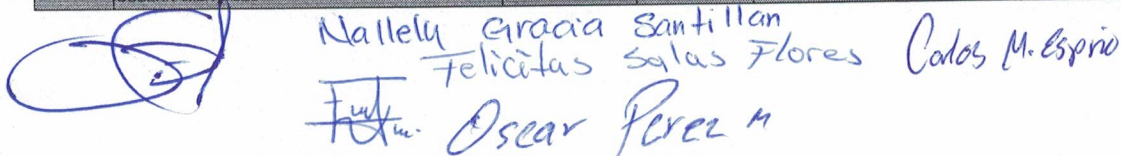 Nallely Gracia Santillan
Felicitas Salas Flores Carlos M. Espino
Oscar Perez M